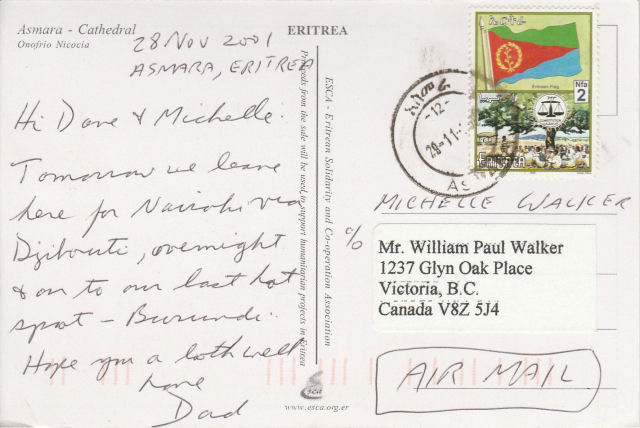 Asmara - Cathedral
Onofrio Nicocia
ERITREA
28 NOV 2001
ASMARA, ERITREA
Hi Dave & Michelle.
Tomorrow we leave
here for Nairobi via
Djibouti, overnight
& on to our last hot
spot - Burundi.
Hope you a both well
Love
Dad
Proceeds from the sale will be used in support humanitarian projects in Eritrea
ESCA - Eritrean Solidarity and Co-operation Association
esca
www.esca.org.er
ኤርትራ
Eritrean Flag
Nfa
2
ERITREA
አስመራ
-12-
29-11-
AS
MICHELLE WALKER
c/o
Mr. William Paul Walker
1237 Glyn Oak Place
Victoria, B.C.
Canada V8Z 5J4
AIR MAIL